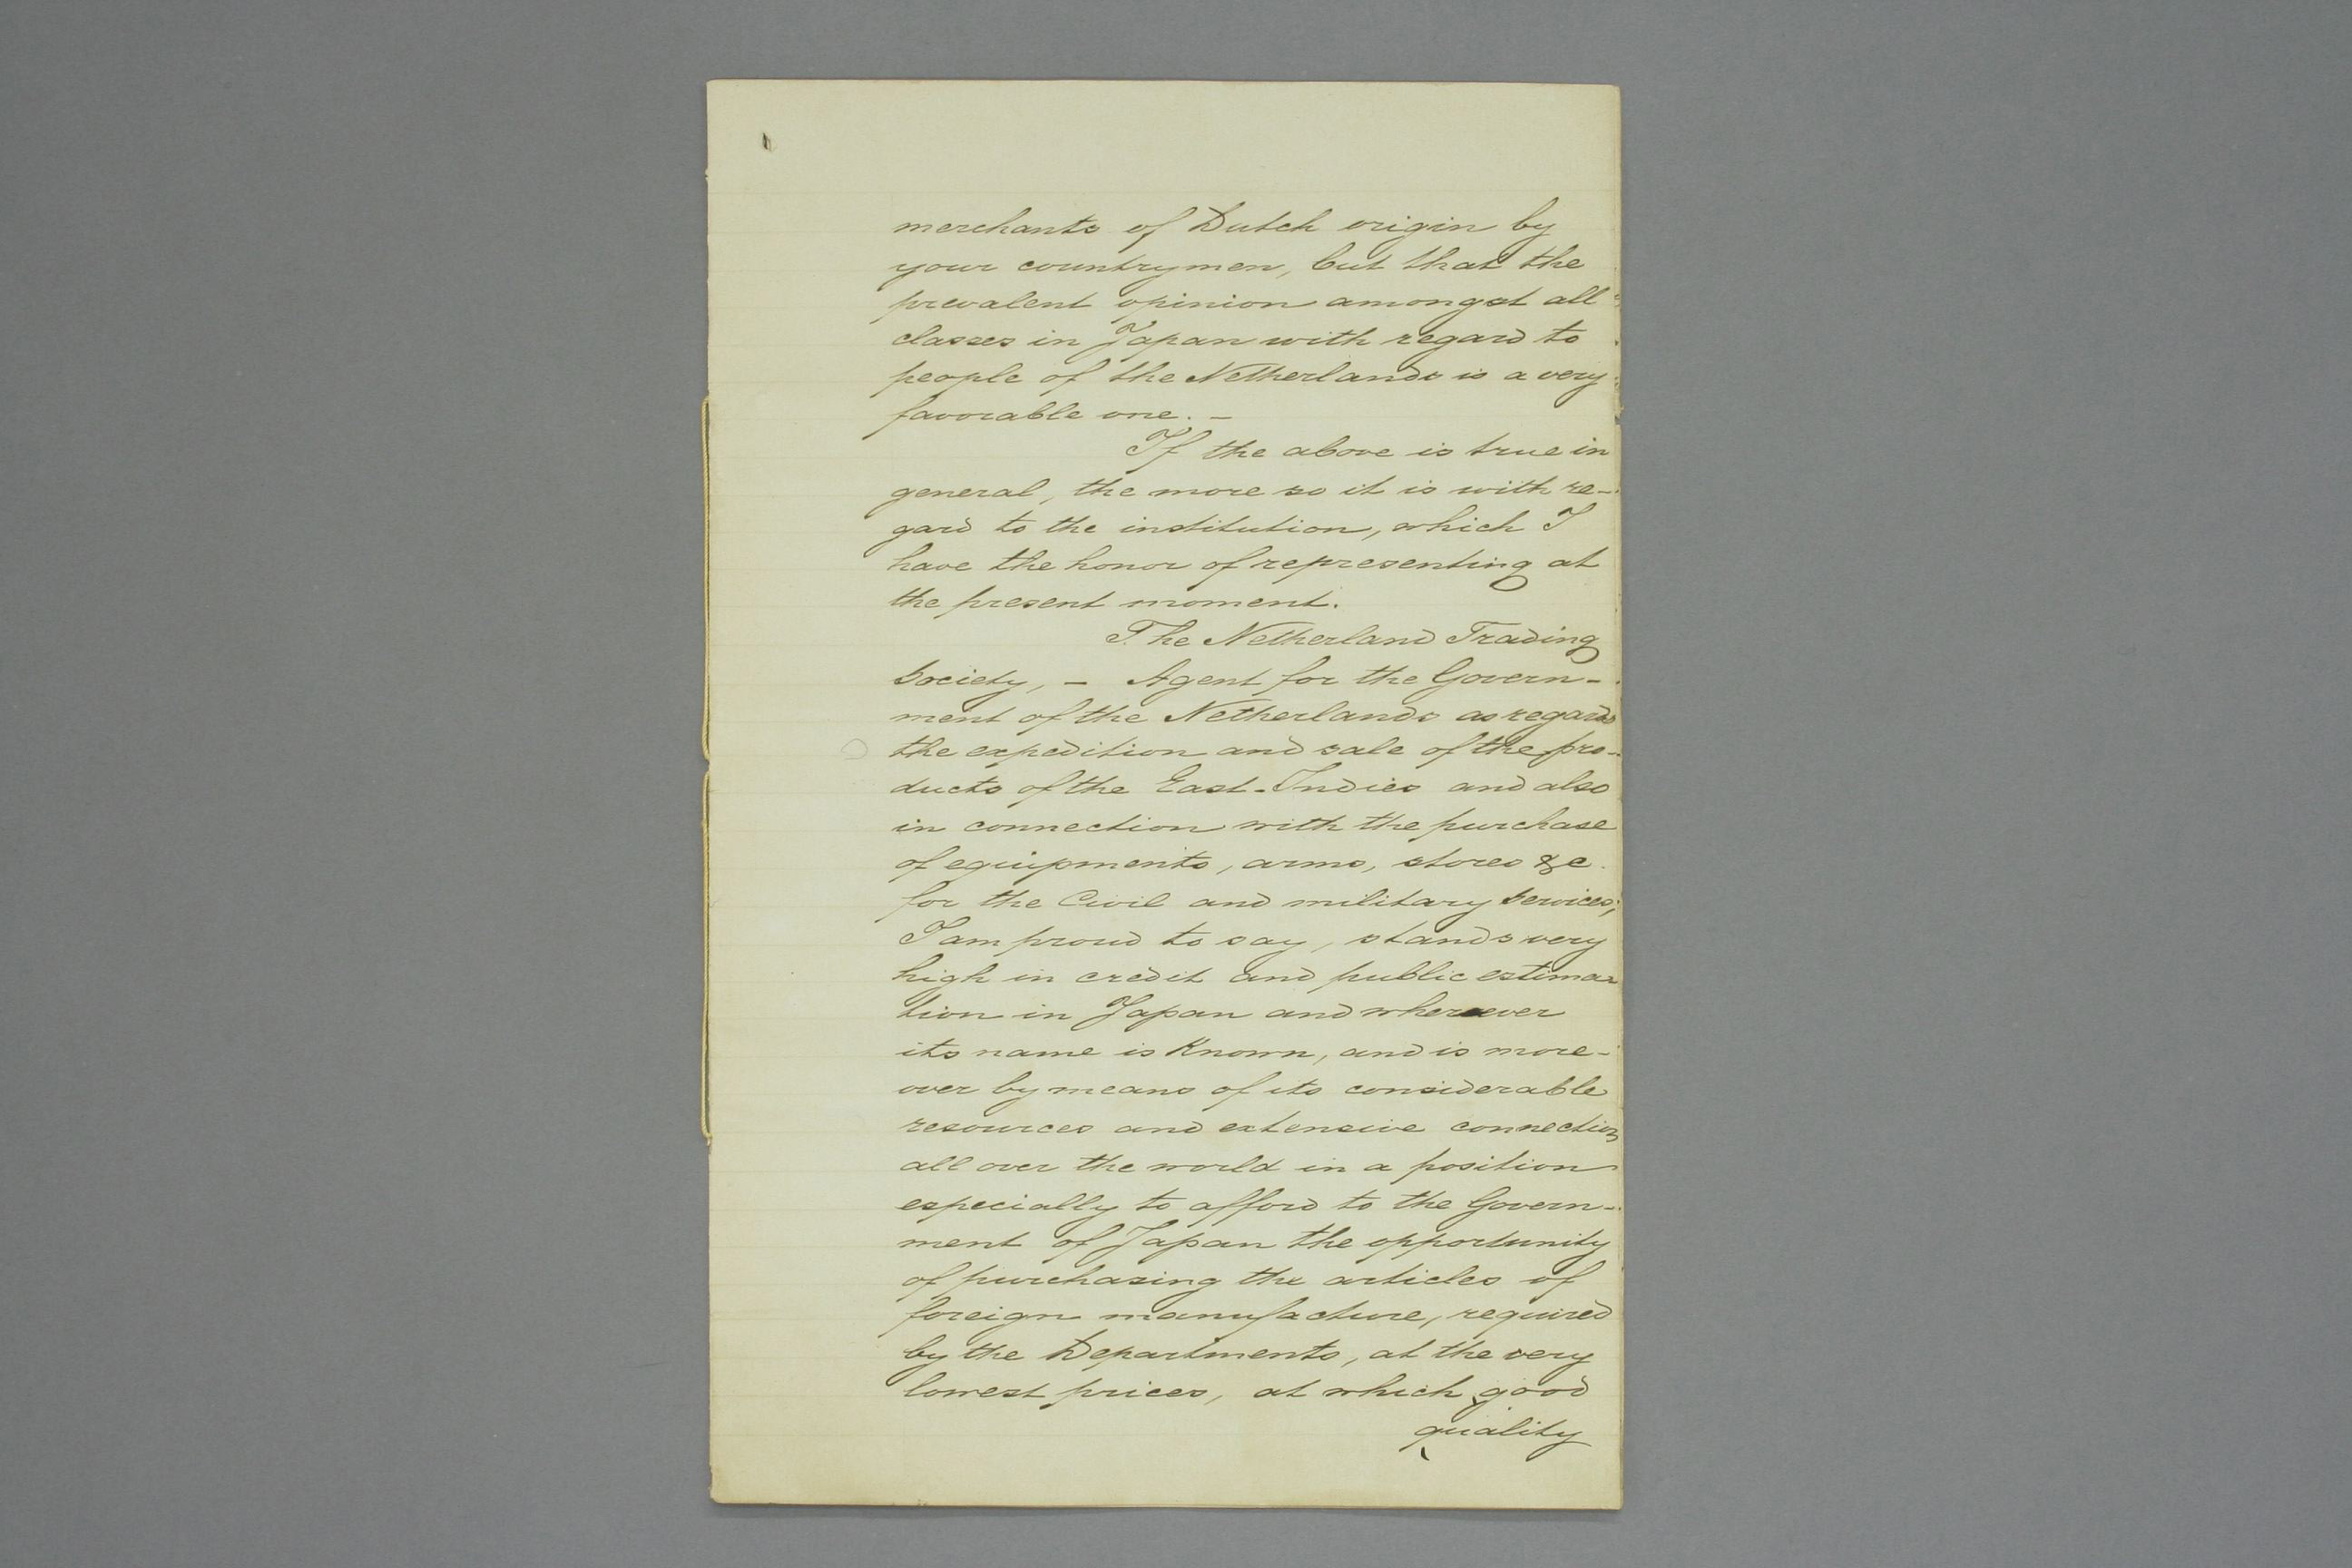 merchants of Dutch origin by
your countrymen, but that the
prevalent opinion amongst all
classes in Japan with regard to
people of the Netherlands is a very
favorable one. –
If the above is true in
general, the more so it is with re-
gard to the institution, which I
have the honor of representing at
the present moment.
The Netherland Trading
Society, – Agent for the Govern-
ment of the Netherlands as regards
the expedition and sale of the pro-
ducts of the East-Indies and also
in connection with the purchase
of equipments, arms, stores &c.
for the Civil and military Services;
I am proud to say, stands very
high in credit and public estima-
tion in Japan and wherever
its name is known, and is more-
over by means of its considerable
resources and extensive connection
all over the world in a position
especially to afford to the Govern-
ment of Japan the opportunity
of purchasing the articles of
foreign manufacture, required
by the Departments, at the very
lowest prices, at which good
quality